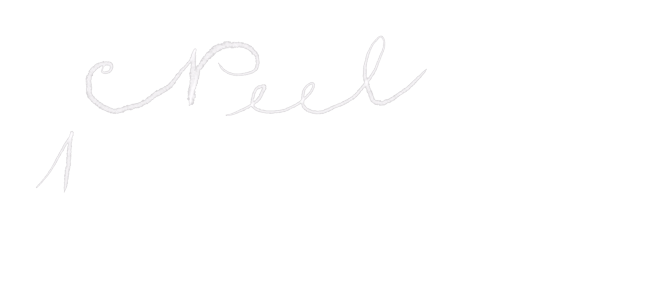 Peel
1